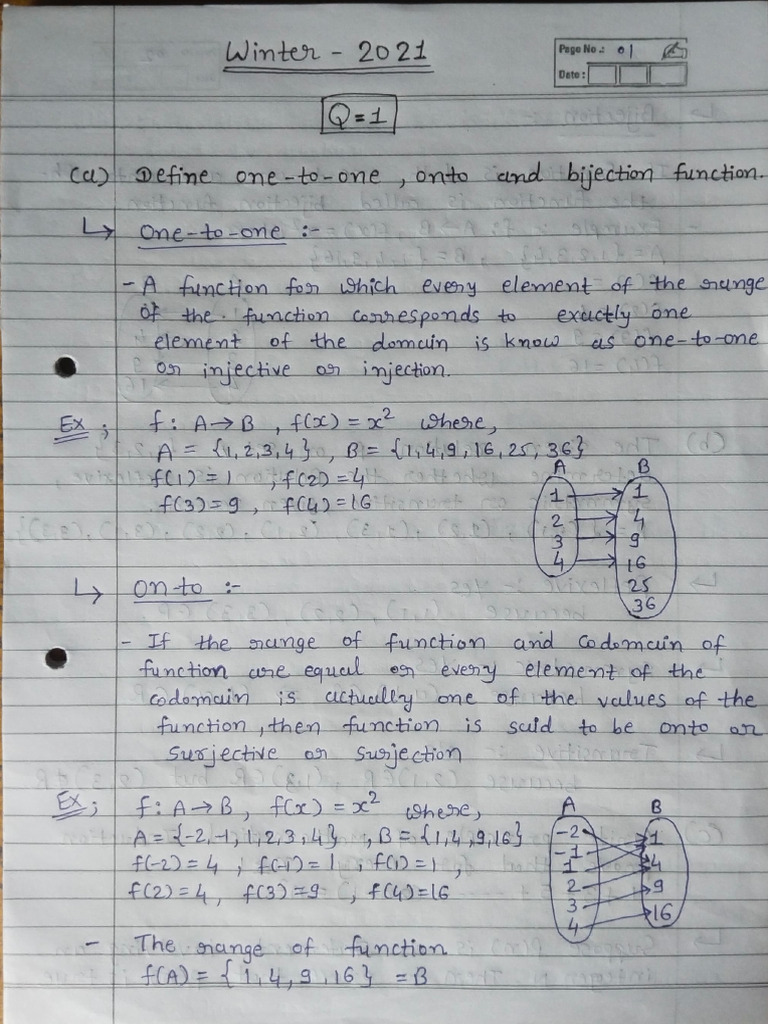 Winter - 2021
Page No.: 01
Date:
Q=1
(a) Define one-to-one, onto and bijection function.
↳ One-to-one :-
- A function for which every element of the range
of the function corresponds to exactly one
element of the domain is know as one-to-one
or injective or injection.
Ex ; f: A→B , f(x) = x² where,
A = {1,2,3,4} , B = {1,4,9,16,25,36}
f(1)=1 , f(2)=4
f(3)=9 , f(4)=16
A B
1 1
2 4
3 9
4 16
25
36
↳ On-to :-
- If the range of function and codomain of
function are equal or every element of the
codomain is actually one of the values of the
function, then function is said to be onto or
surjective or surjection
Ex ; f: A→B , f(x) = x² where,
A = {-2,-1,1,2,3,4} , B = {1,4,9,16}
f(-2)=4 , f(-1)=1 , f(1)=1 ,
f(2)=4 , f(3)=9 , f(4)=16
A B
-2 1
-1 4
1 9
2 16
3
4
- The range of function
f(A) = {1,4,9,16} = B